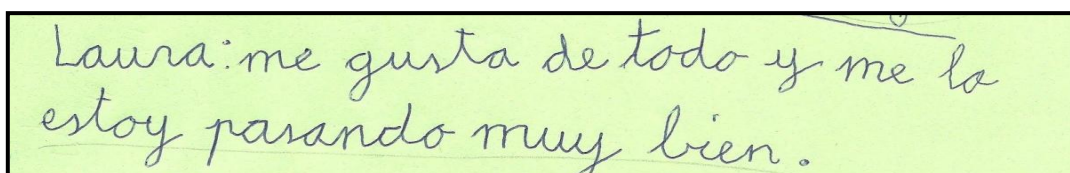 Laura: me gusta de todo y me lo
estoy pasando muy bien.